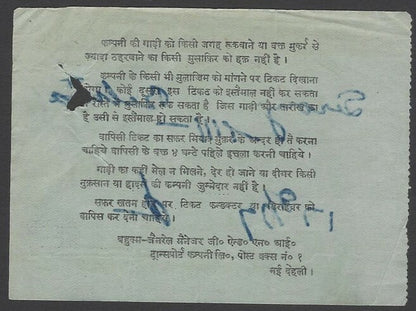 कम्पनी की गाड़ी को किसी जगह रुकवाने या वक्त मुकर्र से
ज्यादा ठहरवाने का किसी मुसाफ़िर को हक़ नहीं है ।
कम्पनी के किसी भी मुलाजिम को मांगने पर टिकट दिखाना
कोई दूसरा इस टिकट को इस्तैमाल नहीं कर सकता
रास्ते में मुसाफ़िर सकता है जिस गाड़ी और तारीख का
है उसी से इस्तैमाल हो सकता है ।
वापिसी टिकट का सफर मियाद के अन्दर ही तै करना
चाहिये वापिसी के वक्त ४ घन्टे पहिले इत्तला करनी चाहिये ।
गाड़ी का कहीं मेल न मिलने, देर हो जाने या दीगर किसी
नुक़सान या हादसे की कम्पनी जुम्मेदार नहीं है ।
सफर खतम होने पर टिकट कन्डक्टर या ड्राईवर को
वापिस कर देना चाहिये ।
बहुक्म—जैनरेल मैनेजर जी० ऐन्ड० एन० आई०
ट्रान्सपोर्ट कम्पनी लि०, पोस्ट बक्स नं० १
नई देहली ।